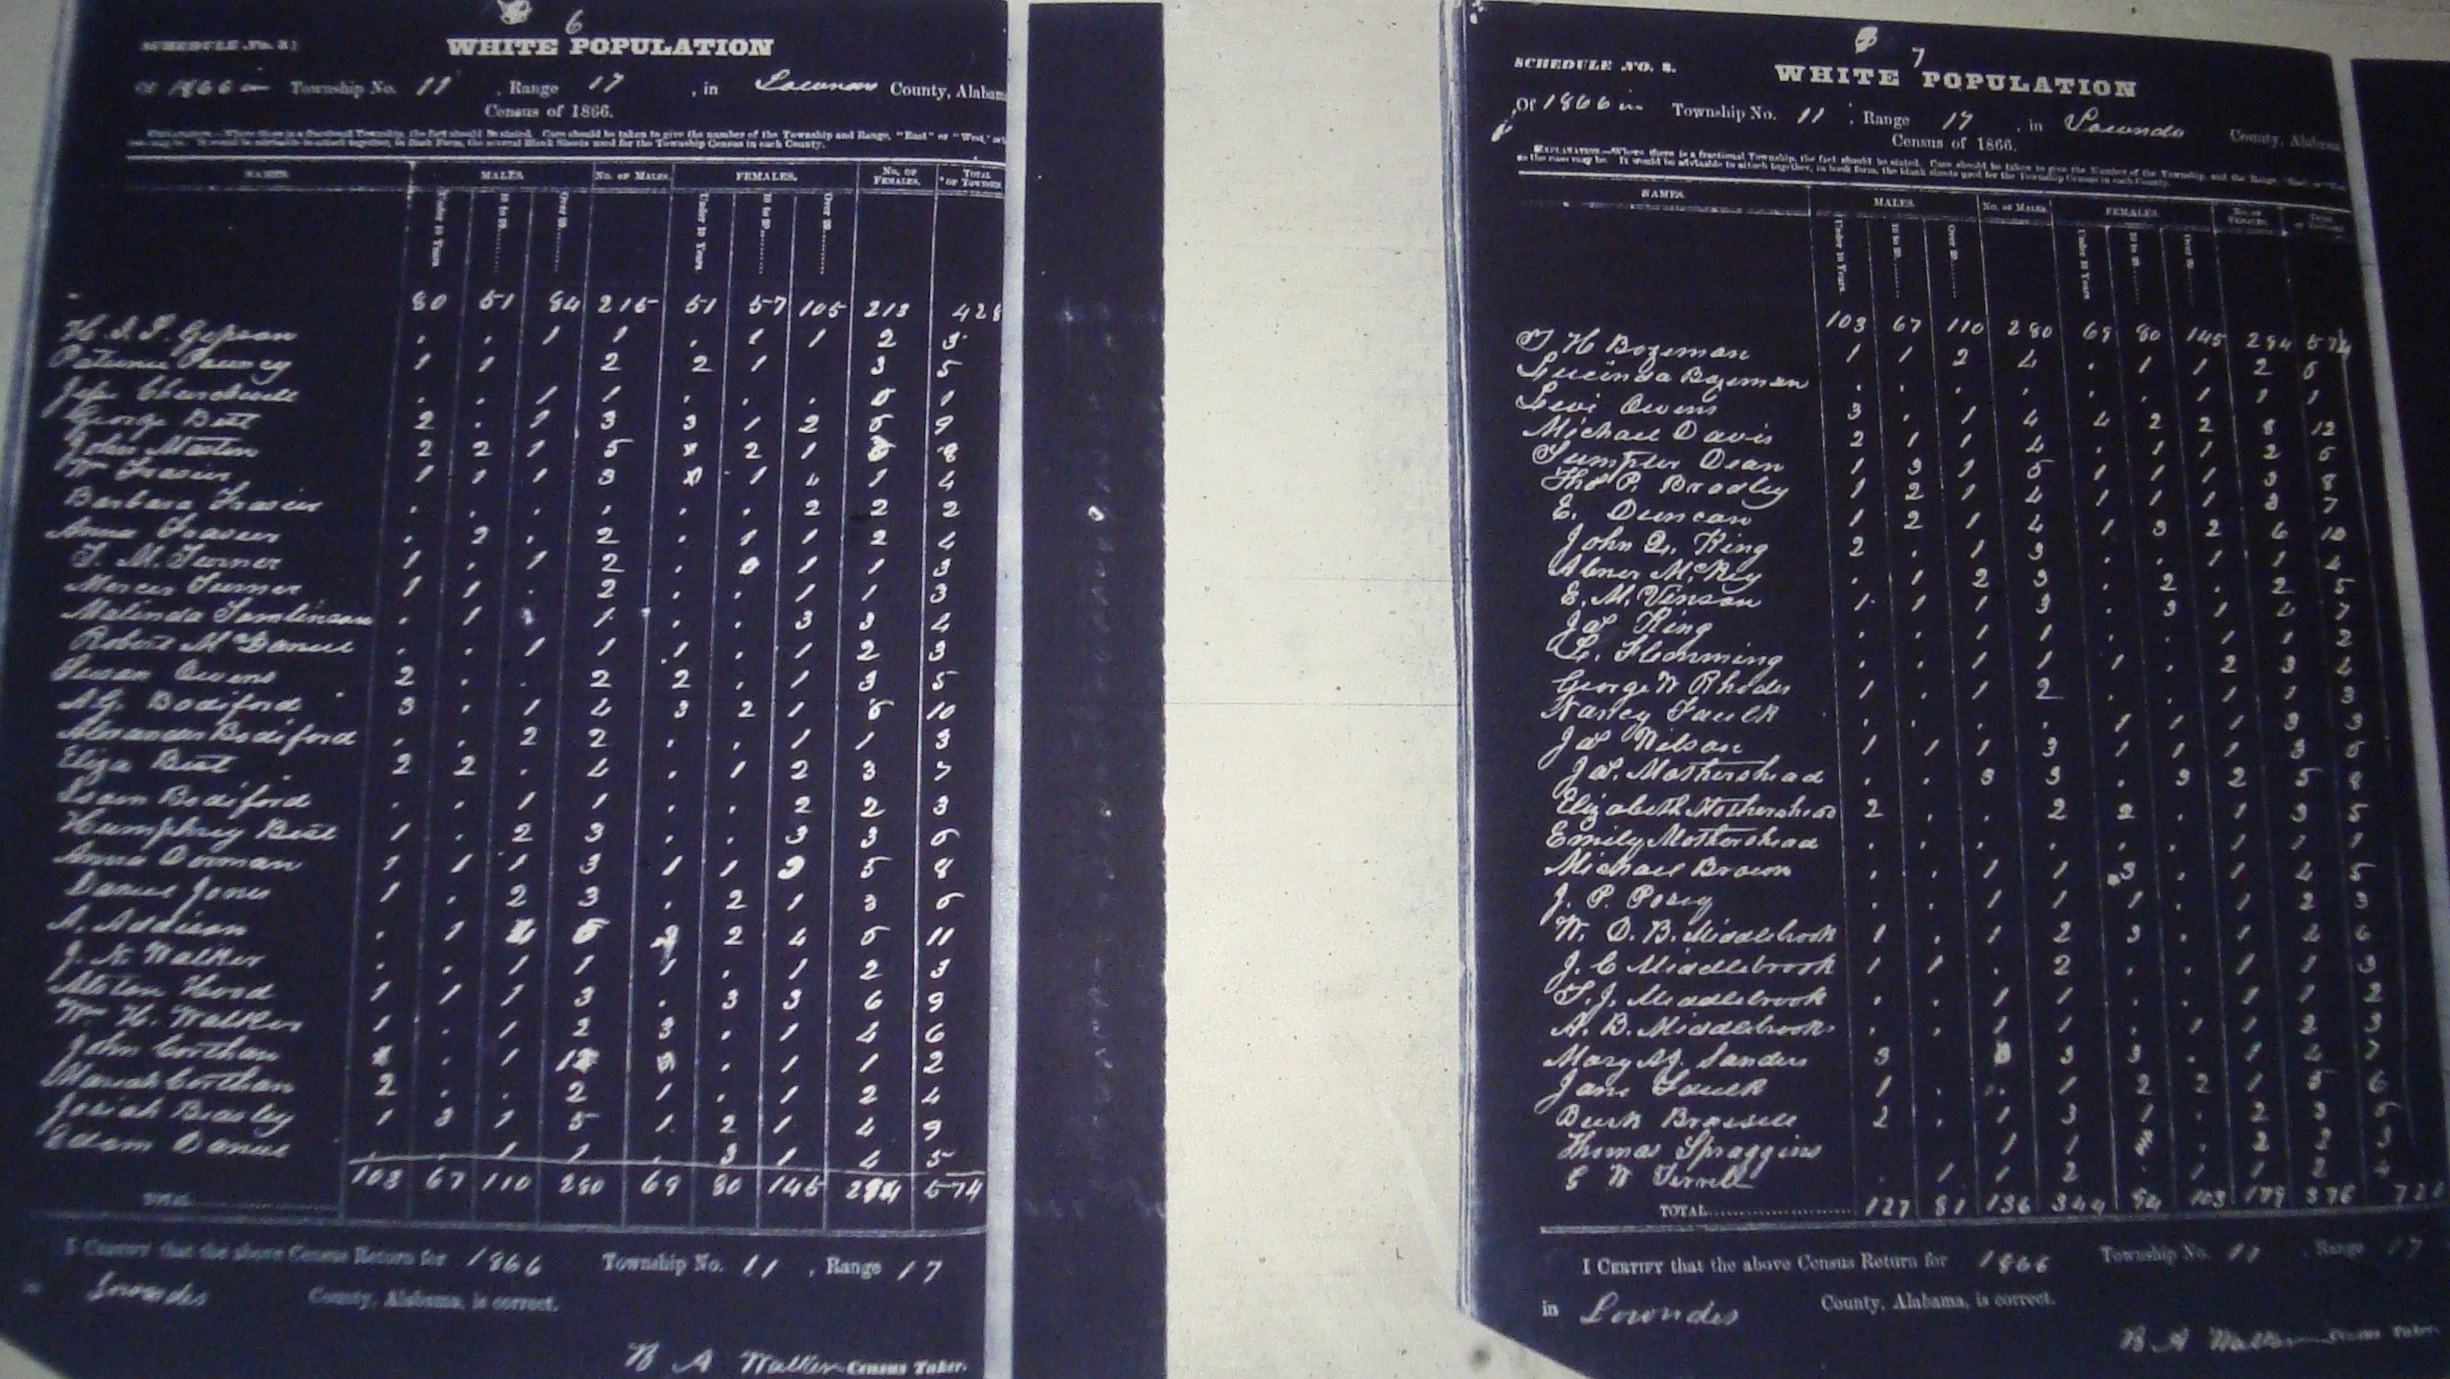 6
SCHEDULE No. 3.
WHITE POPULATION
Of 1866 in Township No. 11, Range 17, in Lowndes County, Alabama
Census of 1866.
EXPLANATION.—Where there is a fractional Township, the fact should be stated. Care should be taken to give the number of the Township and Range, "East" or "West,"
may be. It would be advisable to attach together, in Book Form, the several Blank Sheets used for the Township Census in each County.
NAMES. MALES. No. of Males. FEMALES. No. of Females. TOTAL of Townsh
Under 10 Years. 10 to Over Under 10 Years. 10 to Over
80 51 84 215 51 57 105 213 428
. . 1 1 . 1 1 2 3
1 1 2 2 1 3 5
Churchwell . . 1 1 . . . 1
George Best 2 . 1 3 3 1 2 6 9
John 2 2 1 5 2 1 8
Wm Frasier 1 1 1 3 1 1 4
Barbara Frasier . . . . . . 2 2 2
Anna Frasier . 2 . 2 . 1 1 2 4
T. M. Turner 1 . 1 2 . 0 1 1 3
Turner 1 1 . 2 . . 1 1 3
Malinda Tomlinson . 1 1 . . 3 3 4
Robert McDaniel . . 1 1 1 . 1 2 3
Susan Owens 2 . . 2 2 . 1 3 5
A. G. Bodiford 3 . 1 4 3 2 1 6 10
Alexander Bodiford . . 2 2 . . 1 1 3
Eliza Best 2 2 . 4 . 1 2 3 7
Bodiford . . 1 1 . . 2 2 3
Humphrey Best 1 . 2 3 . . 3 3 6
Anna Dorman 1 1 1 3 1 1 3 5 8
Daniel Jones 1 . 2 3 . 2 1 3 6
A. Addison . 1 2 4 6 11
J. N. Walker . . 1 1 1 . 1 2 3
Hood 1 1 1 3 . 3 3 6 9
Wm H. Walker 1 . 1 2 3 . 1 4 6
John Corthan . 1 1 . 1 1 2
Mariah Corthan 2 . . 2 1 . 1 2 4
Josiah Beasley 1 3 1 5 1 2 1 4 9
Daniel . . 1 1 . 3 1 4 5
TOTAL 103 67 110 280 69 80 145 294 574
I CERTIFY that the above Census Return for 1866 Township No. 11, Range 17
in Lowndes County, Alabama, is correct.
B A Walker Census Taker.
7
SCHEDULE NO. 3.
WHITE POPULATION
Of 1866 in Township No. 11, Range 17, in Lowndes County, Alabama
Census of 1866.
EXPLANATION.—Where there is a fractional Township, the fact should be stated. Care should be taken to give the Number of the Township, and the Range,
as the case may be. It would be advisable to attach together, in book form, the blank sheets used for the Township Census in each County.
NAMES. MALES. No. of Males. FEMALES. No. of Females. Total of Township
Under 10 Years. 10 to Over Under 10 Years 10 to Over
103 67 110 280 69 80 145 294 574
T H Bozeman 1 1 2 4 . 1 1 2 6
Lucinda Bozeman . . . . . . 1 1 1
Levi Owens 3 . 1 4 4 2 2 8 12
Michael Davis 2 1 1 4 . 1 1 2 6
Sumpter Dean 1 3 1 5 1 1 1 3 8
Thos P. Bradley 1 2 1 4 1 1 1 3 7
E. Duncan 1 2 1 4 1 3 2 6 10
John Q. King 2 . 1 3 . . 1 1 4
Abner McKey . 1 2 3 . 2 . 2 5
E. M. Vinson 1 1 1 3 . 3 1 4 7
Jas King . . 1 1 . . 1 1 2
L. Flemming . . 1 1 1 . 2 3 4
George W Rhodes 1 . 1 2 . . 1 1 3
Nancy Faulk . . . . 1 1 1 3 3
Jas Wilson 1 1 1 3 1 1 1 3 6
Jas. Mothershead . . 3 3 . 3 2 5 8
Elizabeth Mothershead 2 . . 2 2 . 1 3 5
Emily Mothershead . . . . . . 1 1 1
Michael Brown . . 1 1 3 . 1 4 5
J. P. Posey . . 1 1 1 . 1 2 3
W. D. B. Middlebrook 1 . 1 2 3 . 1 4 6
J. C Middlebrook 1 1 . 2 . . 1 1 3
T. J. Middlebrook . . 1 1 . . 1 1 2
A. B. Middlebrooks . . 1 1 . 1 1 2 3
Mary A. J. Sanders 3 3 3 . 1 4 7
Jane Faulk 1 . . 1 2 2 1 5 6
Burk Brassell 2 . 1 3 1 . 2 3 6
Thomas Spraggins 1 1 . 2 2 3
E W Terrell . 1 1 2 . 1 1 2 4
TOTAL 127 81 136 344 94 103 179 376 720
I CERTIFY that the above Census Return for 1866 Township No. 11, Range 17
in Lowndes County, Alabama, is correct.
B A Walker Census Taker.